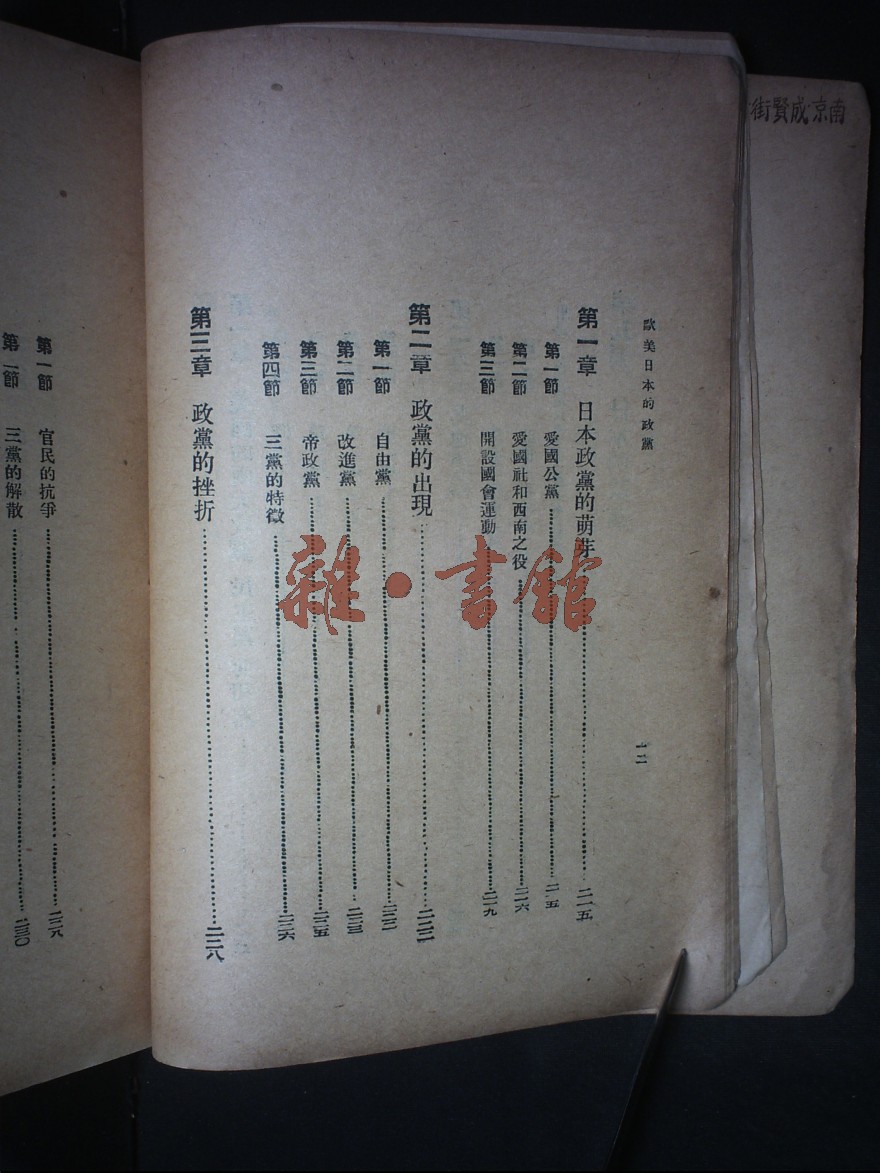 南京·成賢街
歐美日本的政黨
一二
第一章 日本政黨的萌芽……二一五
第一節 愛國公黨……二一五
第二節 愛國社和西南之役……二一六
第三節 開設國會運動……二一九
第二章 政黨的出現……二二二
第一節 自由黨……二二二
第二節 改進黨……二二三
第三節 帝政黨……二二五
第四節 三黨的特徵……二二六
第三章 政黨的挫折……二二八
第一節 官民的抗爭……二二八
第二節 三黨的解散……二三〇
雜·書館